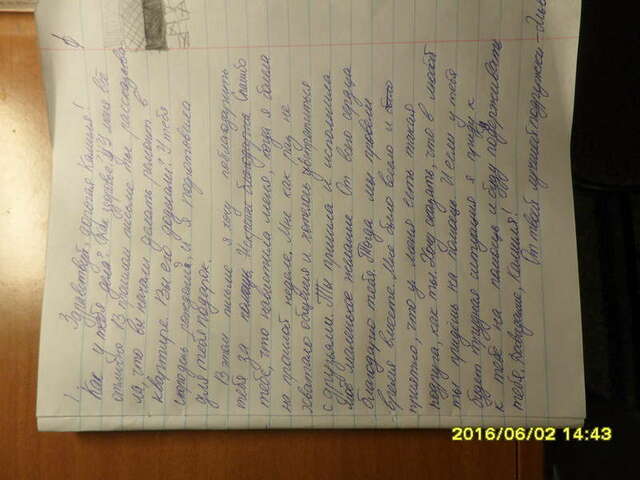 Здравствуй, дорогая Камила!
Как у тебя дела? Как здоровье? У меня всё
отлично. В прошлом письме ты рассказыва-
ла, что вы начали делать ремонт в
квартире. Вы его доделали? У тебя
скоро день рождения, и я подготовила
для тебя подарок.
В этом письме я хочу поблагодарить
тебя за помощь. Спасибо
тебе, что навестила меня, когда я болела
на прошлой неделе. Мне как раз не
хватало общения и хотелось увидеться
с друзьями. Ты пришла и исполнила
моё маленькое желание. От всего сердца
благодарю тебя. Тогда мы провели
время вместе. Мне было весело и
приятно, что у меня есть такая
подруга, как ты. Хочу сказать, что в
ты придёшь на помощь. И если у тебя
будет трудная ситуация я приду к
к тебе на помощь и буду поддерживать
тебя. До свидания, Камила!
От твоей лучшей подружки
2016/06/02 14:43